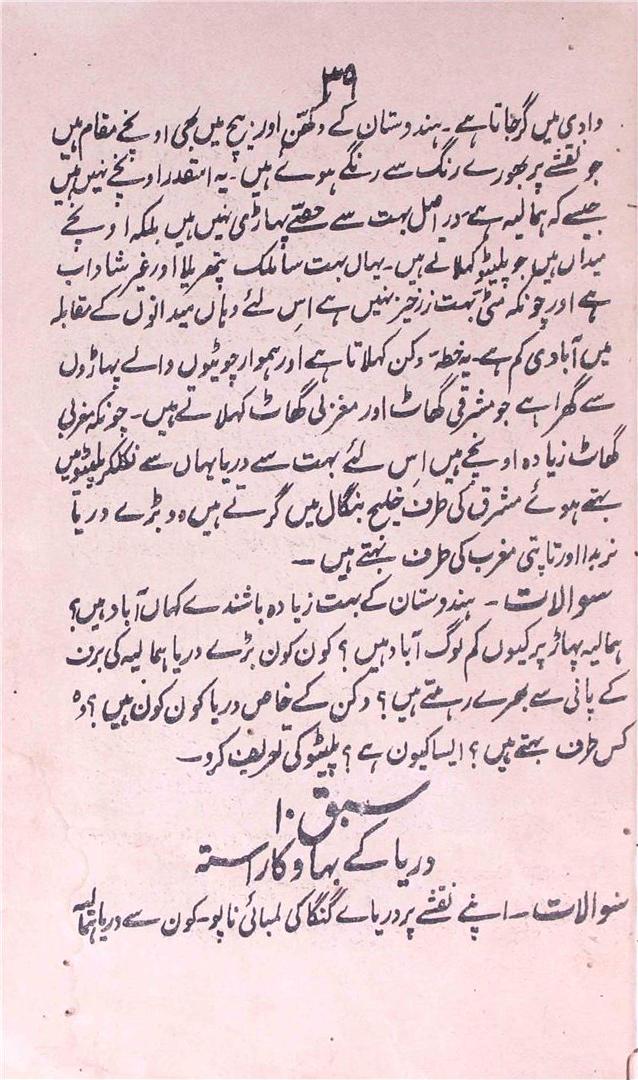 ۳۹
وادی میں گر جاتا ہے۔ ہندوستان کے دکھّن اور بیچ میں بھی اونچے مقام ہیں
جو نقشے پر بھورے رنگ سے رنگے ہوئے ہیں۔ یہ اسقدر اونچے نہیں ہیں
جیسے کہ ہمالیہ ہے۔ در اصل بہت سے حصّے پہاڑی نہیں ہیں بلکہ اونچے
میداں ہیں جو پلیٹو کہلاتے ہیں۔ یہاں بہت سا ملک پتھریلا اور غیر شاداب
ہے اور چونکہ مٹی بہت زرخیز نہیں ہے اِس لئے وہاں میدانوں کے مقابلہ
میں آبادی کم ہے۔ یہ خطہ دکن کہلاتا ہے اور ہموار چوٹیوں والے پہاڑوں
سے گھرا ہے جو مشرقی گھاٹ اور مغربی گھاٹ کہلاتے ہیں۔ چونکہ مغربی
گھاٹ زیادہ اونچے ہیں اِس لئے بہت سے دریا یہاں سے نکلکر پلیٹو میں
بہتے ہوئے مشرق کی طرف خلیج بنگال میں گرتے ہیں دو بڑے دریا
نربدا اور تاپتی مغرب کی طرف بہتے ہیں۔
سوالات۔ ہندوستان کے بہت زیادہ باشندے کہاں آباد ہیں؟
ہمالیہ پہاڑ پر کیوں کم لوگ آباد ہیں؟ کون کون بڑے دریا ہمالیہ کی برف
کے پانی سے بھرے رہتے ہیں؟ دکن کے خاص دریا کون کون ہیں؟ وہ
کس طرف بہتے ہیں؟ ایسا کیون ہے؟ پلیٹو کی تعریف کرو۔
سبق ۱۰
دریا کے بہاو کا راستہ
سوالات۔ اپنے نقشے پر دریاے گنگا کی لمبائی ناپو۔ کون سے دریا ہمالیہ